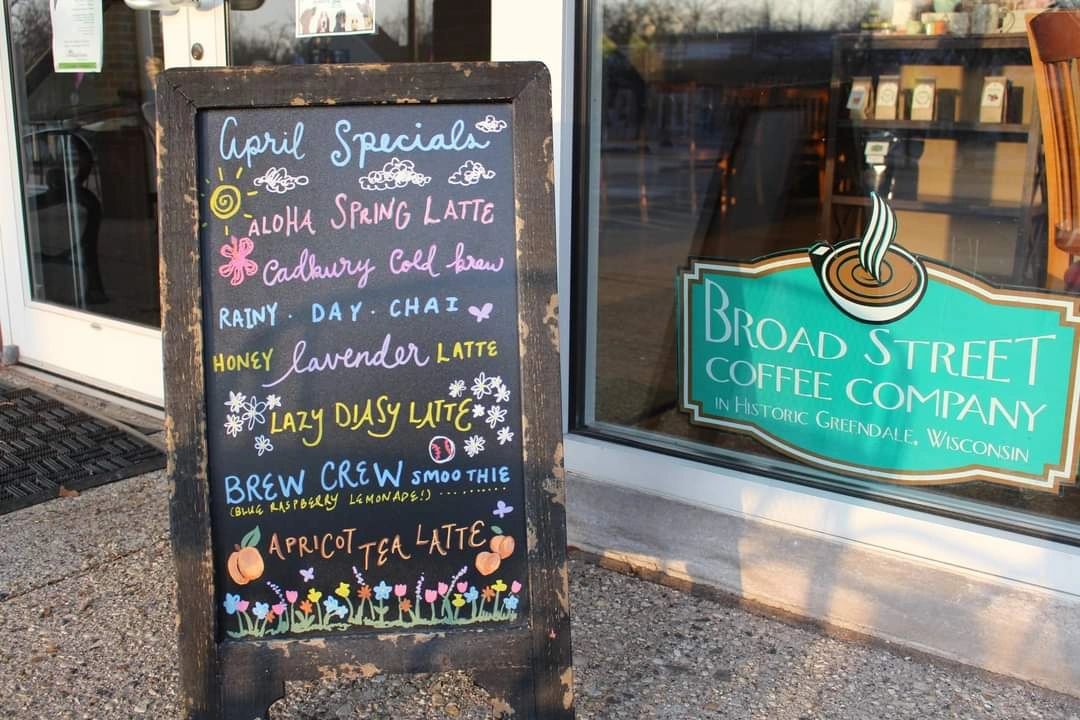 April Specials
ALOHA SPRING LATTE
Cadbury Cold brew
RAINY · DAY · CHAI
HONEY lavender LATTE
LAZY DIASY LATTE
BREW CREW SMOOTHIE
(BLUE RASPBERRY LEMONADE!)
APRICOT TEA LATTE
BROAD STREET
COFFEE COMPANY
IN HISTORIC GREENDALE, WISCONSIN